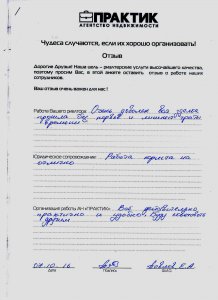 ПРАКТИК
АГЕНТСТВО НЕДВИЖИМОСТИ
Чудеса случаются, если их хорошо организовать!
Отзыв
Дорогие друзья! Наша цель – риэлторские услуги высочайшего качества,
поэтому просим Вас, в этой анкете оставить отзыв о работе наших
сотрудников.
Ваш отзыв очень важен для нас!
Работа Вашего риэлтора: Очень довольны вся сделка
прошла без нервов и лишней траты
времени
Юридическое сопровождение: Работа юриста на
отлично
Организация работы АН «ПРАКТИК»: Всё действительно
практично и удобно. Буду советовать
друзьям
07.10.16
ДАТА
ПОДПИСЬ
ФАМИЛИЯ